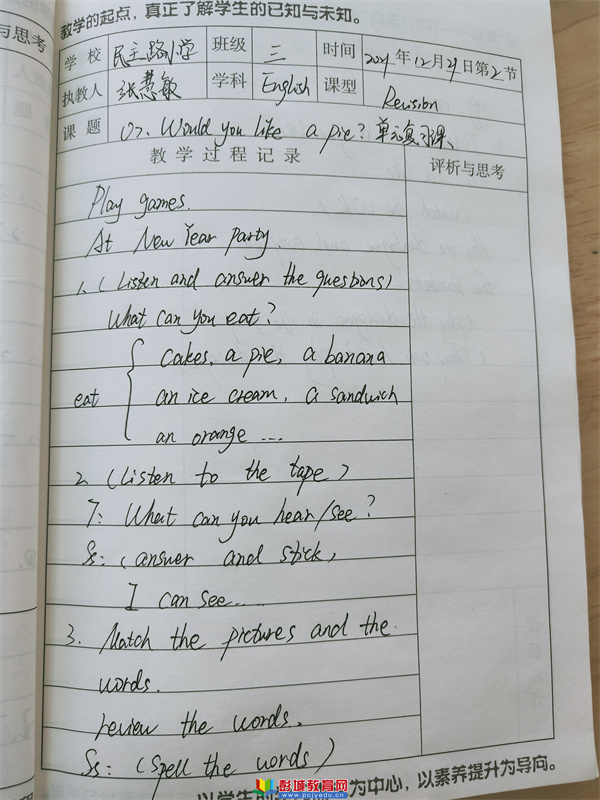 教学的起点，真正了解学生的已知与未知。
与思考
学校 民主路小学 班级 三 时间 2021年12月21日第2节
执教人 张慧敏 学科 English 课型 Revision
课题 U7. Would you like a pie? 单元复习课
教学过程记录 评析与思考
Play games.
At New Year party
1. (Listen and answer the questions)
What can you eat?
eat { cakes, a pie, a banana
an ice cream, a sandwich
an orange ...
2. (Listen to the tape)
T: What can you hear/see?
Ss: (answer and stick)
I can see....
3. Match the pictures and the
words.
review the words.
Ss: (spell the words)
以学生的 为中心，以素养提升为导向。
彭城教育网
www.pcjyedu.cn